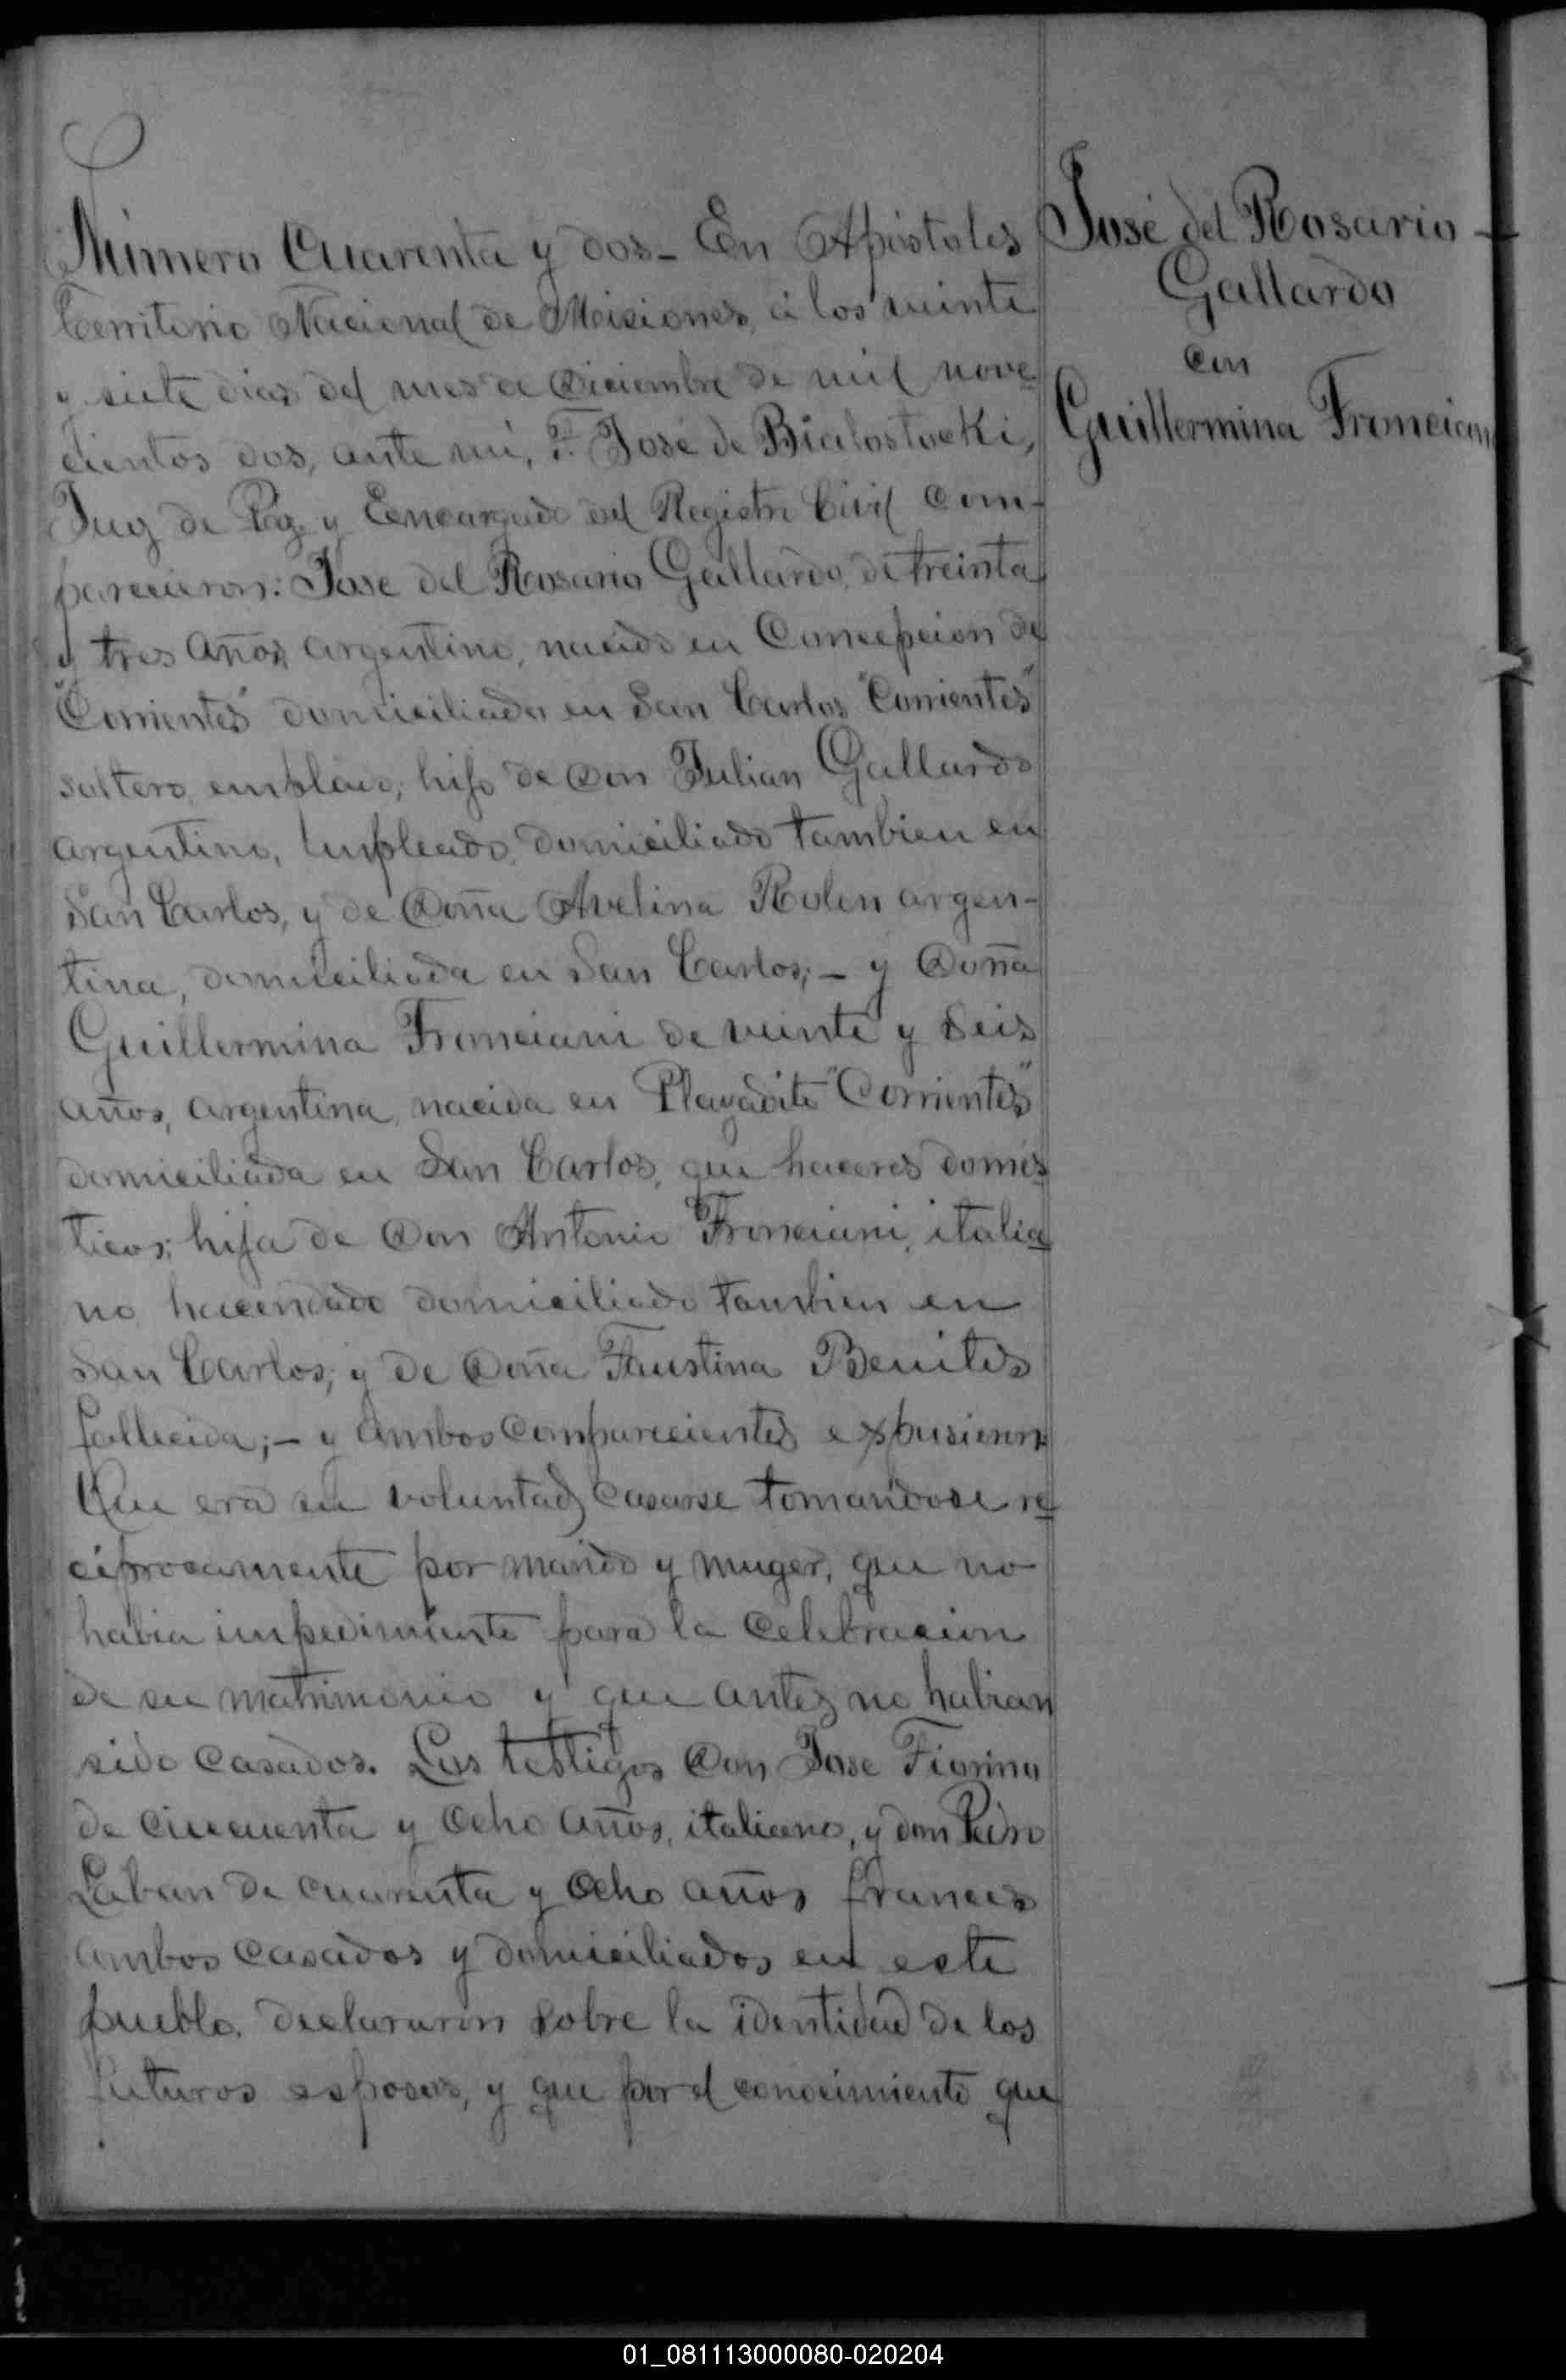 Número Cuarenta y dos_ En Apóstoles
Territorio Nacional de Misiones, á los veinte
y siete dias del mes de Diciembre de mil nove
cientos dos, ante mí, F. José de Bialostocki,
Juez de Paz y Encargado del Registro Civil com-
parecieron: Jose del Rosario Gallardo, de treinta
y tres años, argentino, nacido en Concepcion de
"Corrientes" domiciliado en San Carlos "Corrientes"
soltero, empleado, hijo de Don Julian Gallardo
argentino, empleado, domiciliado tambien en
San Carlos, y de Doña Avelina Rolen argen-
tina, domiciliada en San Carlos;_ y Doña
Guillermina Fronciani de veinte y seis
años, argentina, nacida en Playadito "Corrientes"
domiciliada en San Carlos, que haceres domés
ticos; hija de Don Antonio Fronciani, italia
no, hacendado domiciliado tambien en
San Carlos; y de Doña Faustina Benites
fallecida;_ y ambos comparecientes expusieron:
Que era su voluntad casarse tomandose re
ciprocamente por marido y muger, que no
habia impedimento para la celebracion
de su matrimonio y que antes no habian
sido casados. Los testigos Don Jose Fiorino
de cincuenta y ocho años, italiano, y don Pedro
Laban de cuarenta y ocho años frances
ambos casados y domiciliados en este
pueblo, declararon sobre la identidad de los
futuros esposos, y que por el conocimiento que
José del Rosario
Gallardo
con
Guillermina Fronciani
01_081113000080-020204